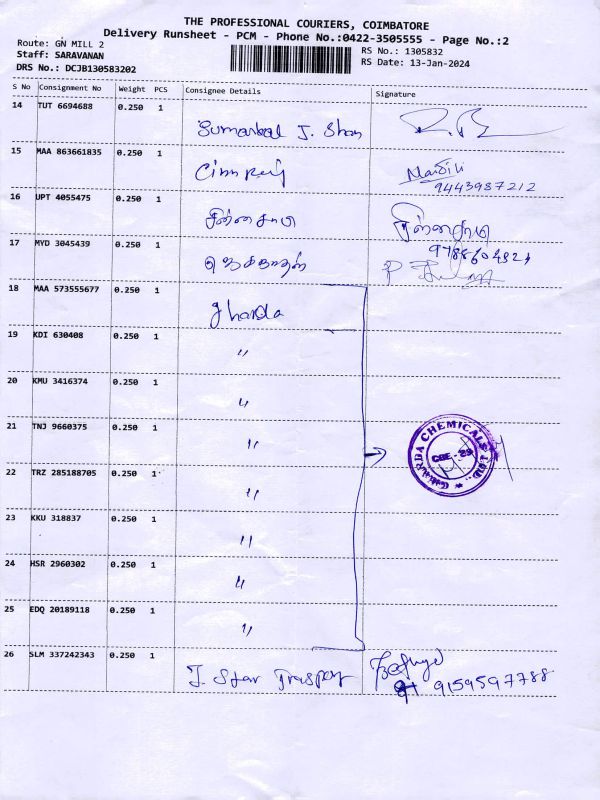 THE PROFESSIONAL COURIERS, COIMBATORE
Delivery Runsheet - PCM - Phone No.:0422-3505555 - Page No.:2
Route: GN MILL 2
Staff: SARAVANAN
DRS No.: DCJB130583202
RS No.: 1305832
RS Date: 13-Jan-2024
S No Consignment No Weight PCS Consignee Details Signature
14 TUT 6694688 0.250 1
15 MAA 863661835 0.250 1
9443987212
16 UPT 4055475 0.250 1 சின்னசாமி சின்னசாமி
9788604824
17 MYD 3045439 0.250 1
18 MAA 573555677 0.250 1 gharda
19 KDI 630408 0.250 1 "
20 KMU 3416374 0.250 1 "
21 TNJ 9660375 0.250 1 "
GHARDA CHEMICALS LTD.
CBE - 29
22 TRZ 285188705 0.250 1 "
23 KKU 318837 0.250 1 "
24 HSR 2960302 0.250 1 "
25 EDQ 20189118 0.250 1 "
26 SLM 337242343 0.250 1 J. Star
9159597788